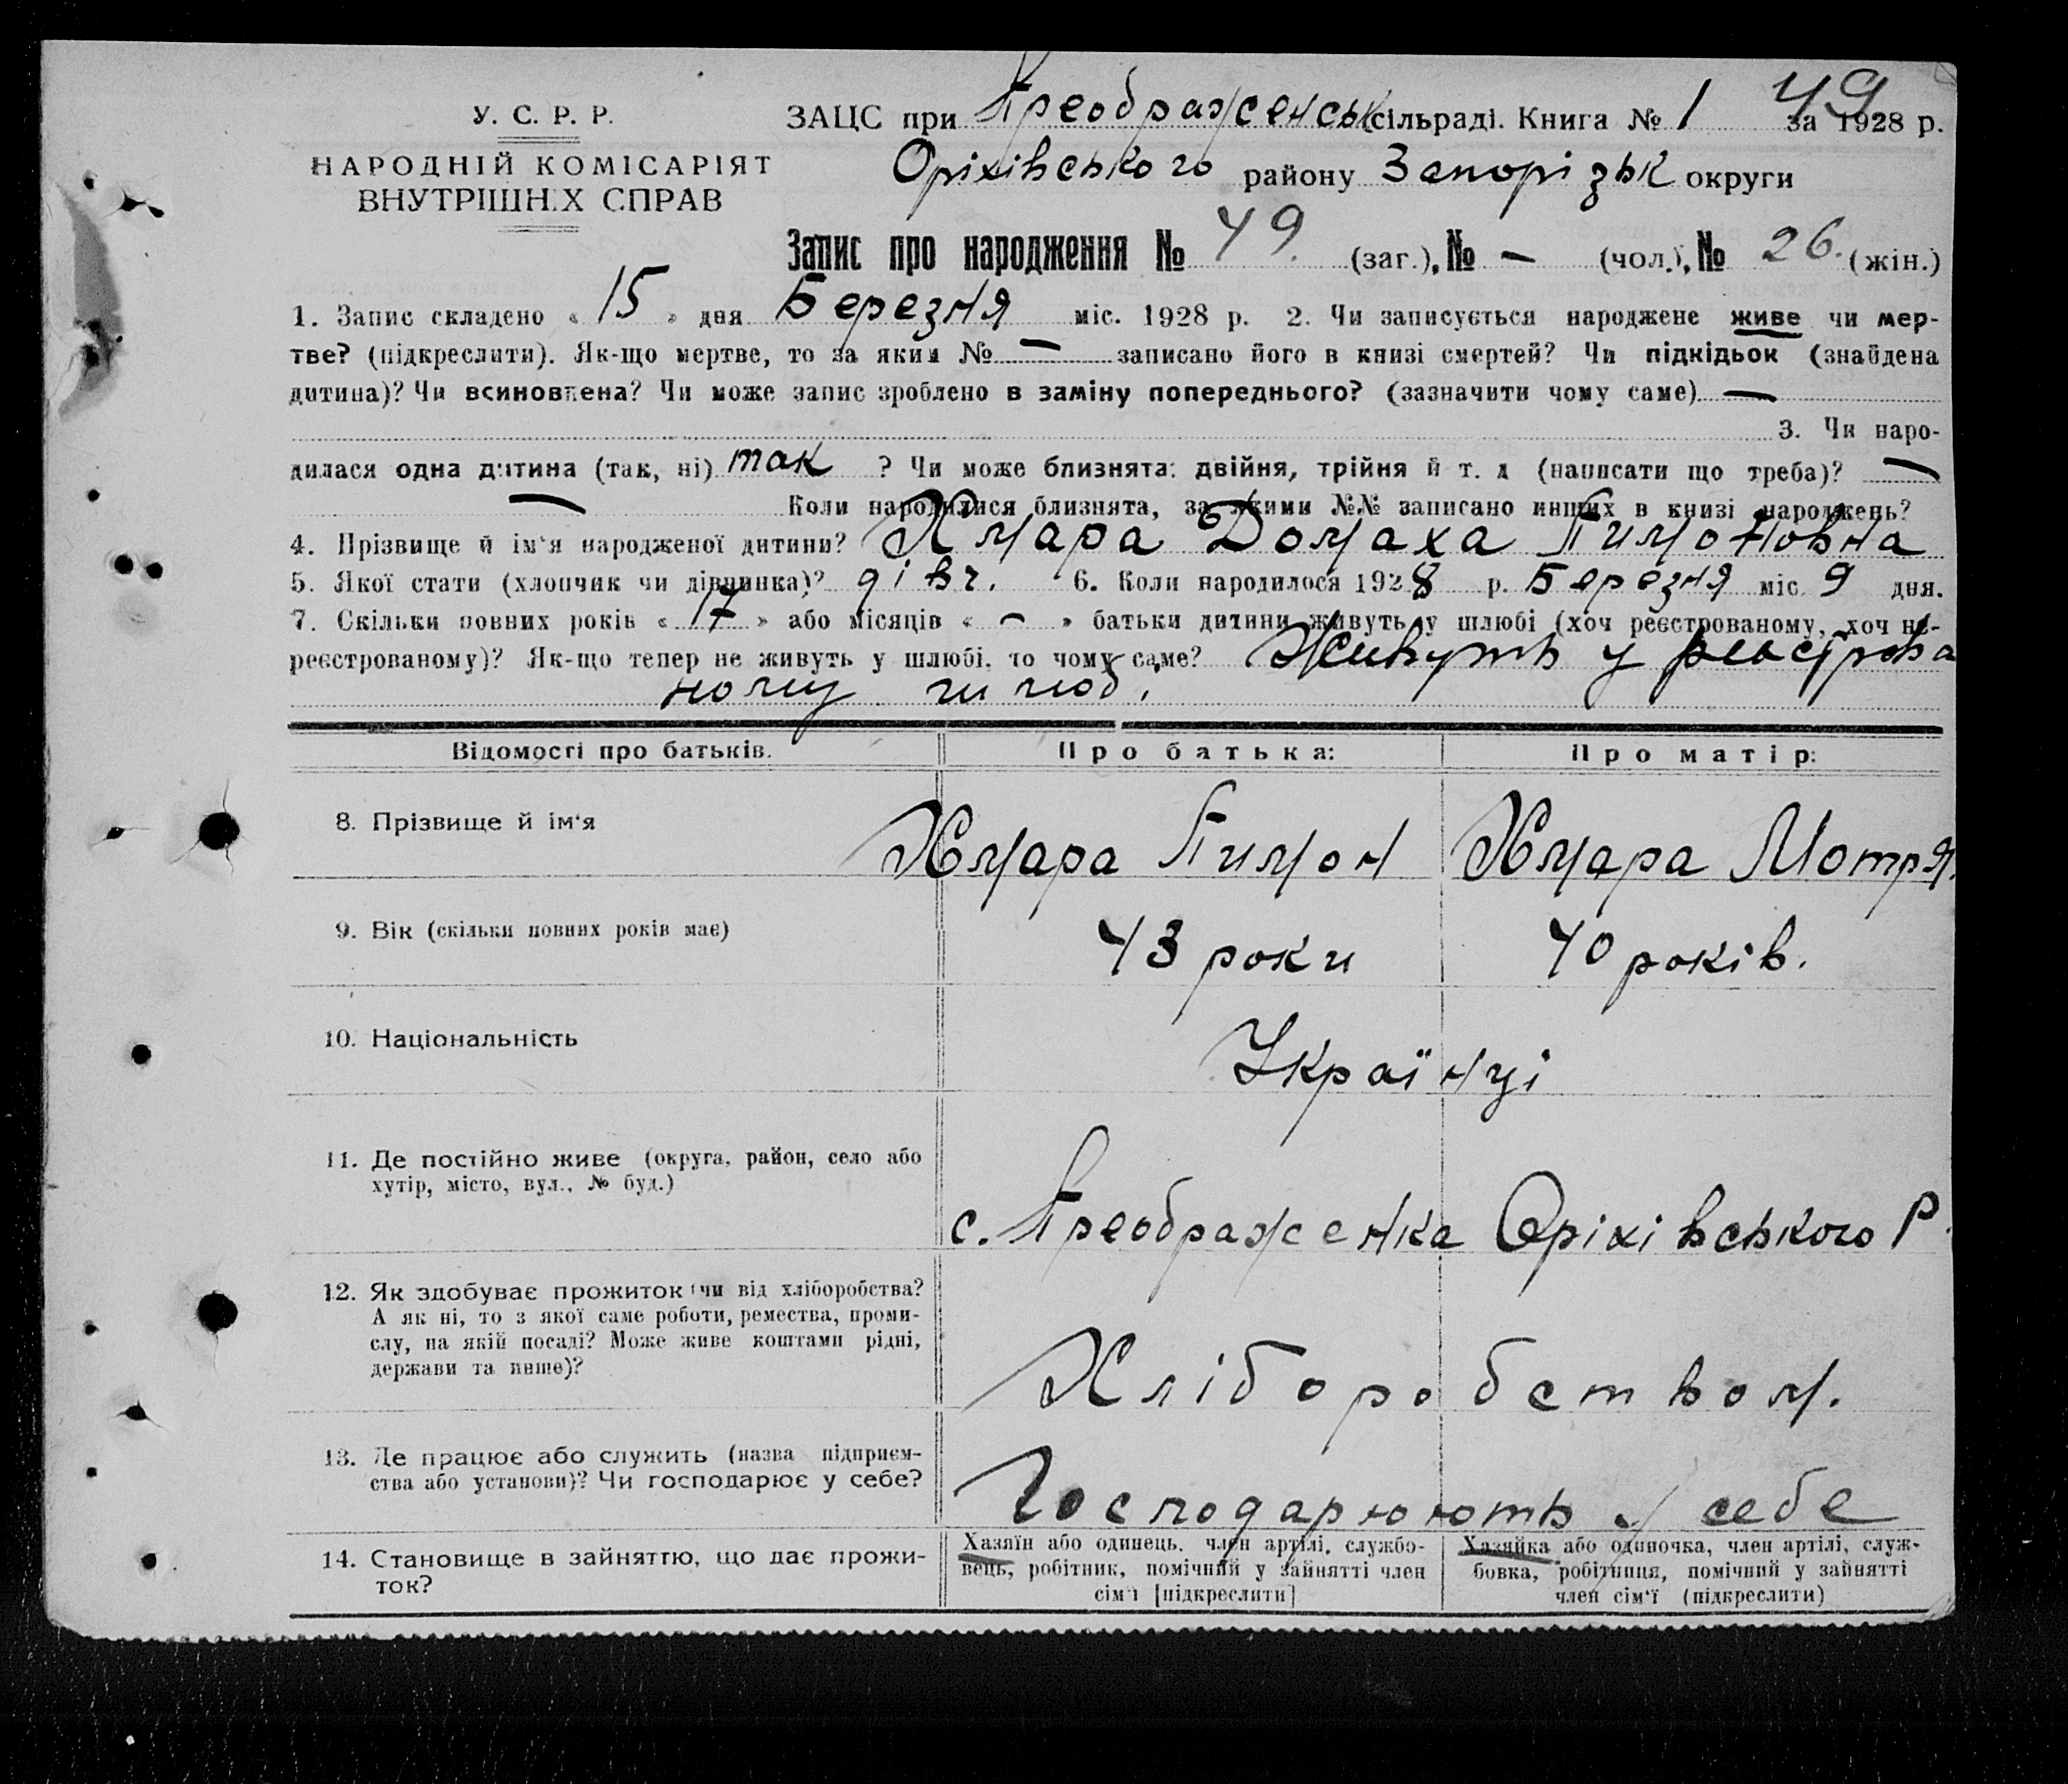 49
У. С. Р. Р.
НАРОДНІЙ КОМІСАРІЯТ
ВНУТРІШНІХ СПРАВ
ЗАЦС при Преображенськ сільраді. Книга № 1 за 1928 р.
Оріхівського району Запорізьк округи
Запис про народження № 49. (заг.), № — (чол.), № 26. (жін.)
1. Запис складено « 15 » дня Березня міс. 1928 р. 2. Чи записується народжене живе чи мер-
тве? (підкреслити). Як-що мертве, то за яким № — записано його в книзі смертей? Чи підкідьок (знайдена
дитина)? Чи всиновлена? Чи може запис зроблено в заміну попереднього? (зазначити чому саме) —
3. Чи наро-
дилася одна дитина (так, ні) так ? Чи може близнята: двійня, трійня й т. д (написати що треба)? —
— Коли народилися близнята, за якими №№ записано инших в книзі народжень?
4. Прізвище й ім'я народженої дитини? Хмара Домаха Тимоновна
5. Якої стати (хлопчик чи дівчинка)? дівч. 6. Коли народилося 1928 р. Березня міс. 9 дня.
7. Скільки повних років « 17 » або місяців « — » батьки дитини живуть у шлюбі (хоч реєстрованому, хоч не-
реєстрованому)? Як-що тепер не живуть у шлюбі, то чому саме? Живуть у реєстрова
ному шлюбі
Відомості про батьків.
Про батька:
Про матір:
8. Прізвище й ім'я
Хмара Тимон
Хмара Мотря.
9. Вік (скільки повних років має)
43 роки
40 років.
10. Національність
Українці
11. Де постійно живе (округа, район, село або
хутір, місто, вул., № буд.)
с. Преображенка Оріхівського Р.
12. Як здобуває прожиток (чи від хліборобства?
А як ні, то з якої саме роботи, ремества, проми-
слу, на якій посаді? Може живе коштами рідні,
держави та инше)?
Хліборобством.
13. Де працює або служить (назва підприєм-
ства або установи)? Чи господарює у себе?
Господарюють у себе
14. Становище в зайняттю, що дає прожи-
ток?
Хазяїн або одинець, член артілі, службо-
вець, робітник, помічний у зайнятті член
сім'ї [підкреслити]
Хазяйка або одиночка, член артілі, служ-
бовка, робітниця, помічний у зайнятті
член сім'ї (підкреслити)